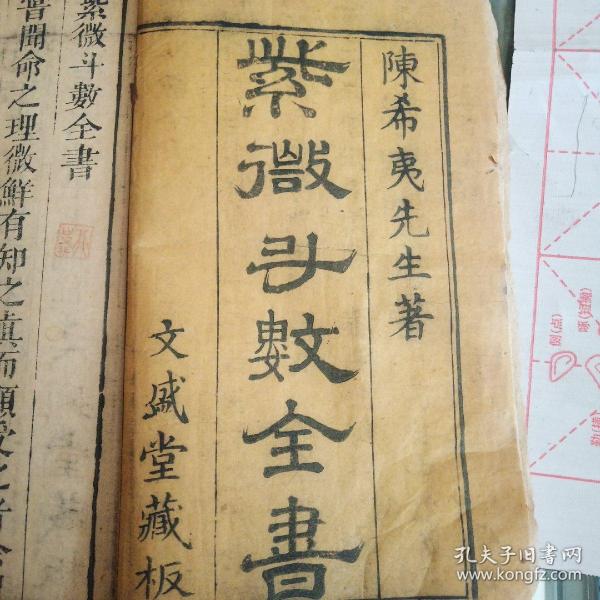 陳希夷先生著
紫微斗數全書
文盛堂藏板
紫微斗數全書
嘗聞命之理微鮮有知之真而順受之者
孔夫子旧书网
www.kongfz.com